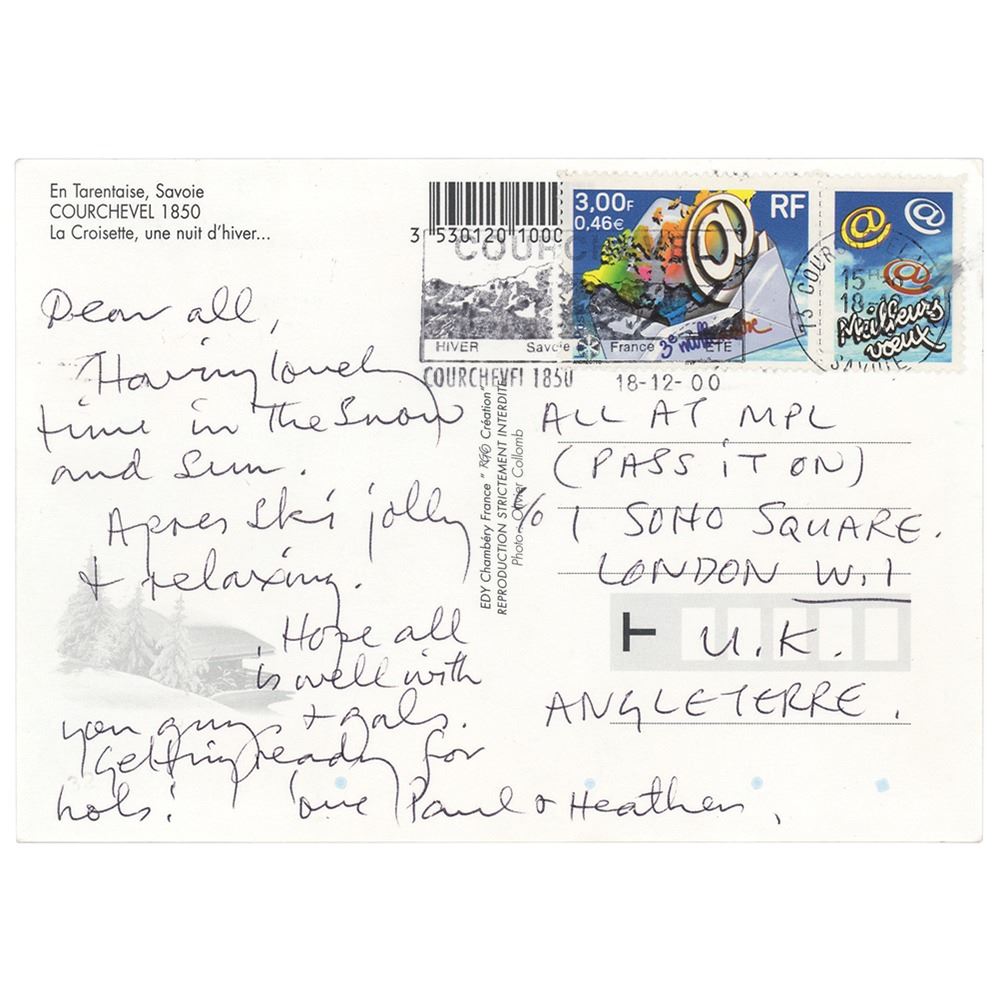 En Tarentaise, Savoie
COURCHEVEL 1850
La Croisette, une nuit d'hiver...
3 530120 1000
COURCHEVEL
HIVER Savoie France ÉTÉ
COURCHEVEL 1850 18-12-00
3,00F
0,46€
RF
@
3e millénaire
@ @
@
Meilleurs
voeux
73 COURCHEVEL
15H
18-12
SAVOIE
Dear all,
Having lovely
time in the snow
and sun.
Apres ski jolly
+ relaxing.
Hope all
is well with
you guys + gals.
Getting ready for
hols! love Paul & Heather,
EDY Chambéry France " Création"
REPRODUCTION STRICTEMENT INTERDITE
Photo Olivier Collomb
ALL AT MPL
(PASS iT ON)
c/o 1 SOHO SQUARE.
LONDON W.1
U.K.
ANGLETERRE.